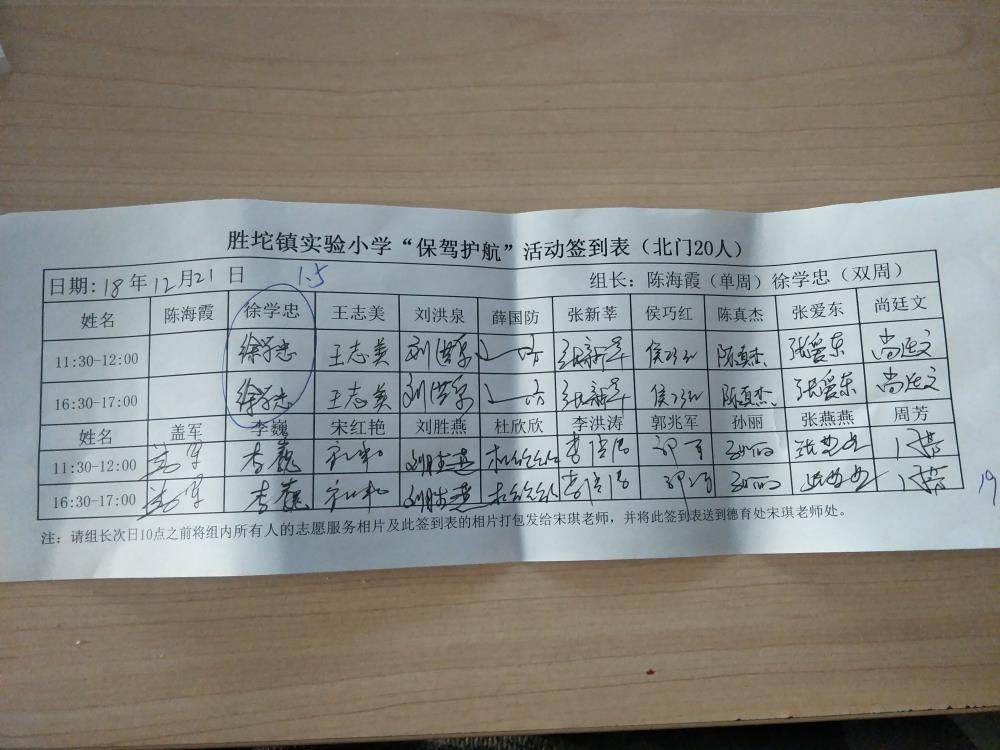 胜坨镇实验小学“保驾护航”活动签到表（北门20人）
日期:18年12月21日 1.5 组长：陈海霞（单周）徐学忠（双周）
姓名 陈海霞 徐学忠 王志美 刘洪泉 薛国防 张新莘 侯巧红 陈真杰 张爱东 尚廷文
11:30-12:00 徐学忠 王志美 刘洪泉 张新莘 侯巧红 陈真杰 张爱东 尚廷文
16:30-17:00 徐学忠 王志美 刘洪泉 张新莘 侯巧红 陈真杰 张爱东 尚廷文
姓名 盖军 李巍 宋红艳 刘胜燕 杜欣欣 李洪涛 郭兆军 孙丽 张燕燕 周芳
11:30-12:00 盖军 李巍 刘胜燕 杜欣欣 李洪涛 孙丽 张燕燕 周芳
16:30-17:00 盖军 李巍 刘胜燕 杜欣欣 李洪涛 孙丽 张燕燕 周芳
19
注：请组长次日10点之前将组内所有人的志愿服务相片及此签到表的相片打包发给宋琪老师，并将此签到表送到德育处宋琪老师处。